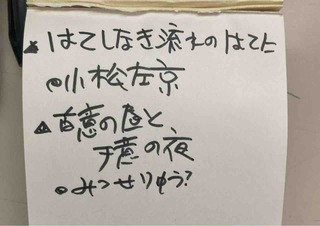 ▲はてしなき流れのはてに
◎小松左京
▲百意の昼と、
千意の夜
◎みつせりゅう?